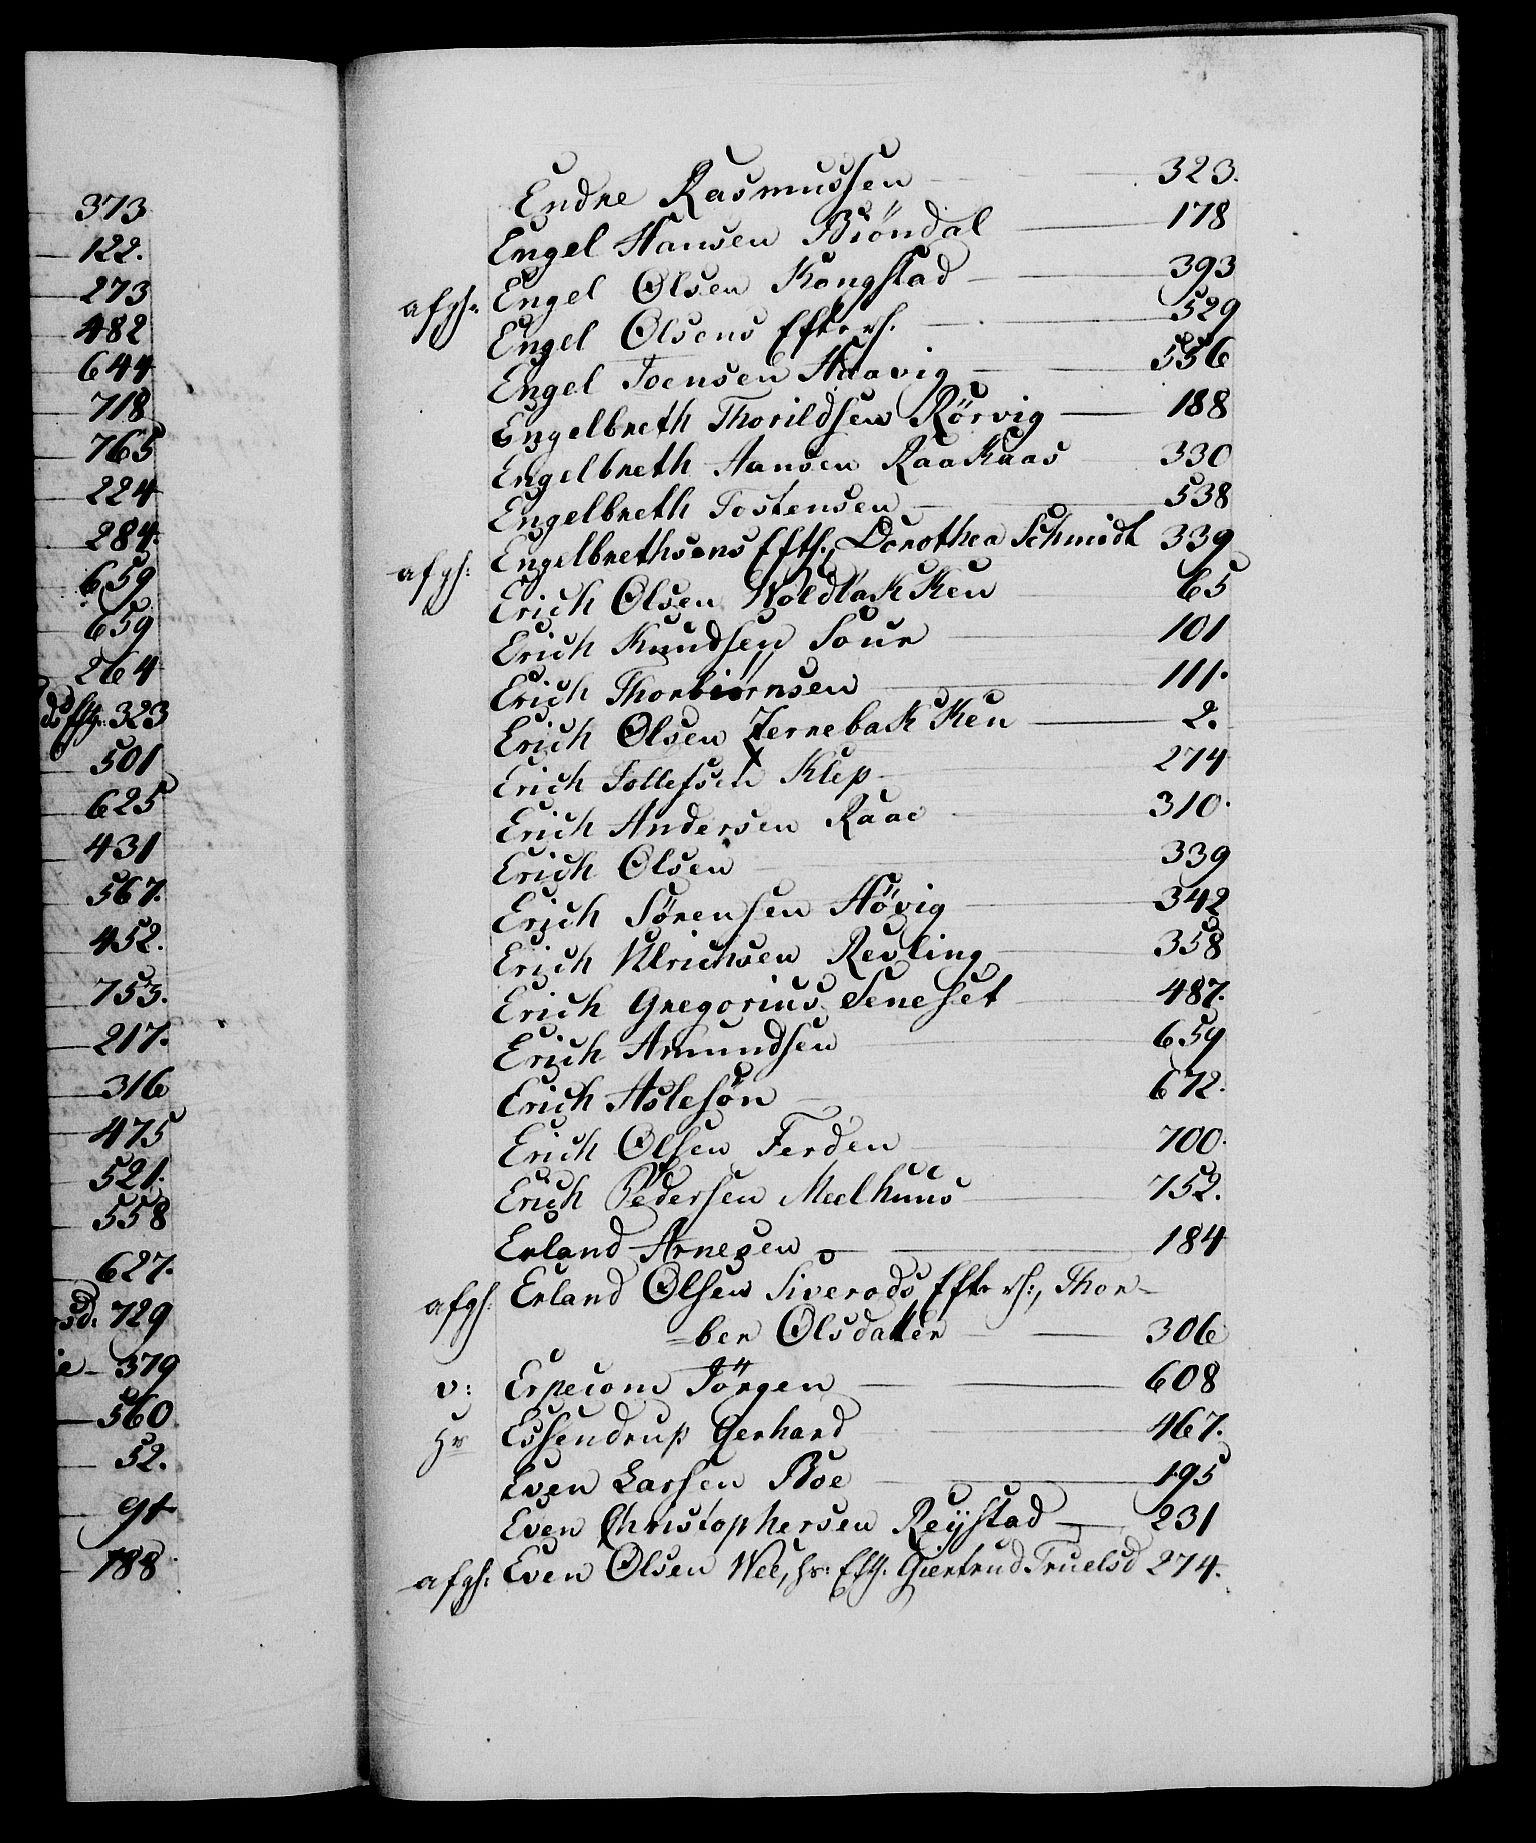 373
122.
273
482
644
718
765
224
284.
659
659
264
ds Efth: 323
501
625
431
567.
452.
753.
217.
316
475
521.
558
627.
sd. 729
ie - 379
560
52.
94
788
Endre Rasmussen 323.
Engel Hansen Biöndal 178
afgh: Engel Olsen Kongstad 393
Engel Olsens Efterl. 529
Engel Joensen Haavig 556
Engelbreth Thorildsen Rörvig 188
Engelbreth Hansen Raakaas 330
Engelbreth Tostensen 538
afgh: Engelbrethsens Efth:, Dorothea Schmidt 339
Erich Olsen Woldbakken 65
Erich Knudsen Sour 101
Erich Thorbiörnsen 111.
Erich Olsen Jernebakken 2.
Erich Tollefsen Klep 274
Erich Andersen Raae 310.
Erich Olsen 339
Erich Sörensen Hövig 342
Erich Ulrichsen Revling 358
Erich Gregorius Seneset 487.
Erich Amundsen 659
Erich Aslesön 672.
Erich Olsen Ferden 700.
Erich Pedersen Meelhuus 752.
Erland Arnesen 184
afgh: Erland Olsen Siverods Efterl:, Thor-
=ber Olsdatter 306
v: Erpecom Jörgen 608
Hr Essendrup Gerhard 467.
Even Larsen Boe 195
Even Christophersen Reystad 231
afgh: Even Olsen Wee, Hr: Efth. Giertrud Truelsd 274.